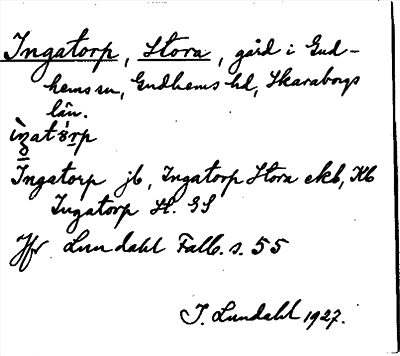 Ingatorp, Stora, gård i Gud-
hems sn, Gudhems hd, Skaraborgs
län.
Ingatorp jb, Ingatorp Stora ekb, Kb
Ingatorp St. GS
Jfr Lundahl Falb. s. 55
I. Lundahl 1927.